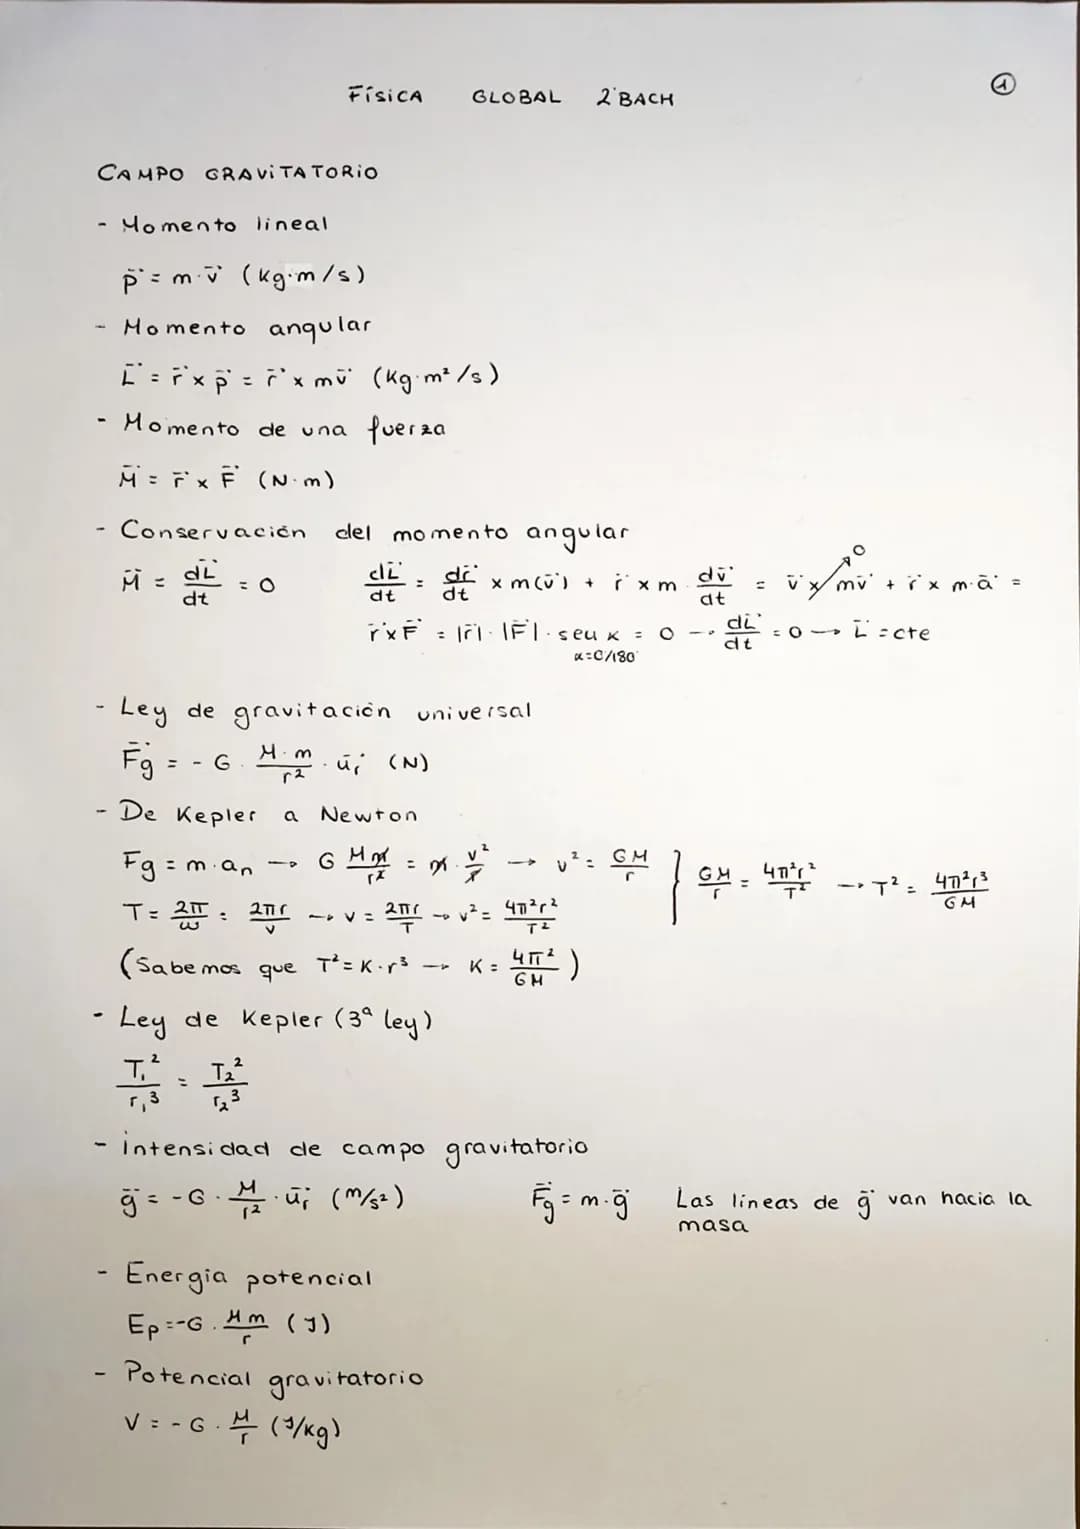 FÍSICA GLOBAL 2ºBACH
①
CAMPO GRAVITATORIO
- Momento lineal
p⃗ = m·v⃗ (kg·m/s)
- Momento angular
L⃗ = r⃗ x p⃗ = r⃗ x mv⃗ (Kg·m²/s)
- Momento de una fuerza
M⃗ = r⃗ x F⃗ (N·m)
- Conservación del momento angular
M⃗ = dL⃗/dt = 0   dL⃗/dt = dr⃗/dt x m(v⃗) + r⃗ x m · dv⃗/dt = v⃗ x mv⃗ (→ 0) + r⃗ x m·a⃗ =
r⃗ x F⃗ = |r⃗|·|F⃗|·sen α = 0 → dL⃗/dt = 0 → L⃗ = cte
α=0/180º
- Ley de gravitación universal
F⃗g = - G · M·m/r² · u⃗r (N)
- De Kepler a Newton
Fg = m·an → G Mm/r² = m · v²/r → v² = GM/r } GM/r = 4π²r²/T² → T² = 4π²r³/GM
T = 2π/ω = 2πr/v → v = 2πr/T → v² = 4π²r²/T²
(Sabemos que T² = K·r³ → K = 4π²/GM)
- Ley de Kepler (3ª ley)
T₁²/r₁³ = T₂²/r₂³
- intensidad de campo gravitatorio
g⃗ = -G · M/r² · u⃗r (m/s²)   F⃗g = m·g⃗   Las líneas de g⃗ van hacia la
masa
- Energía potencial
Ep = -G · Mm/r (J)
- Potencial gravitatorio
V = - G · M/r (J/kg)